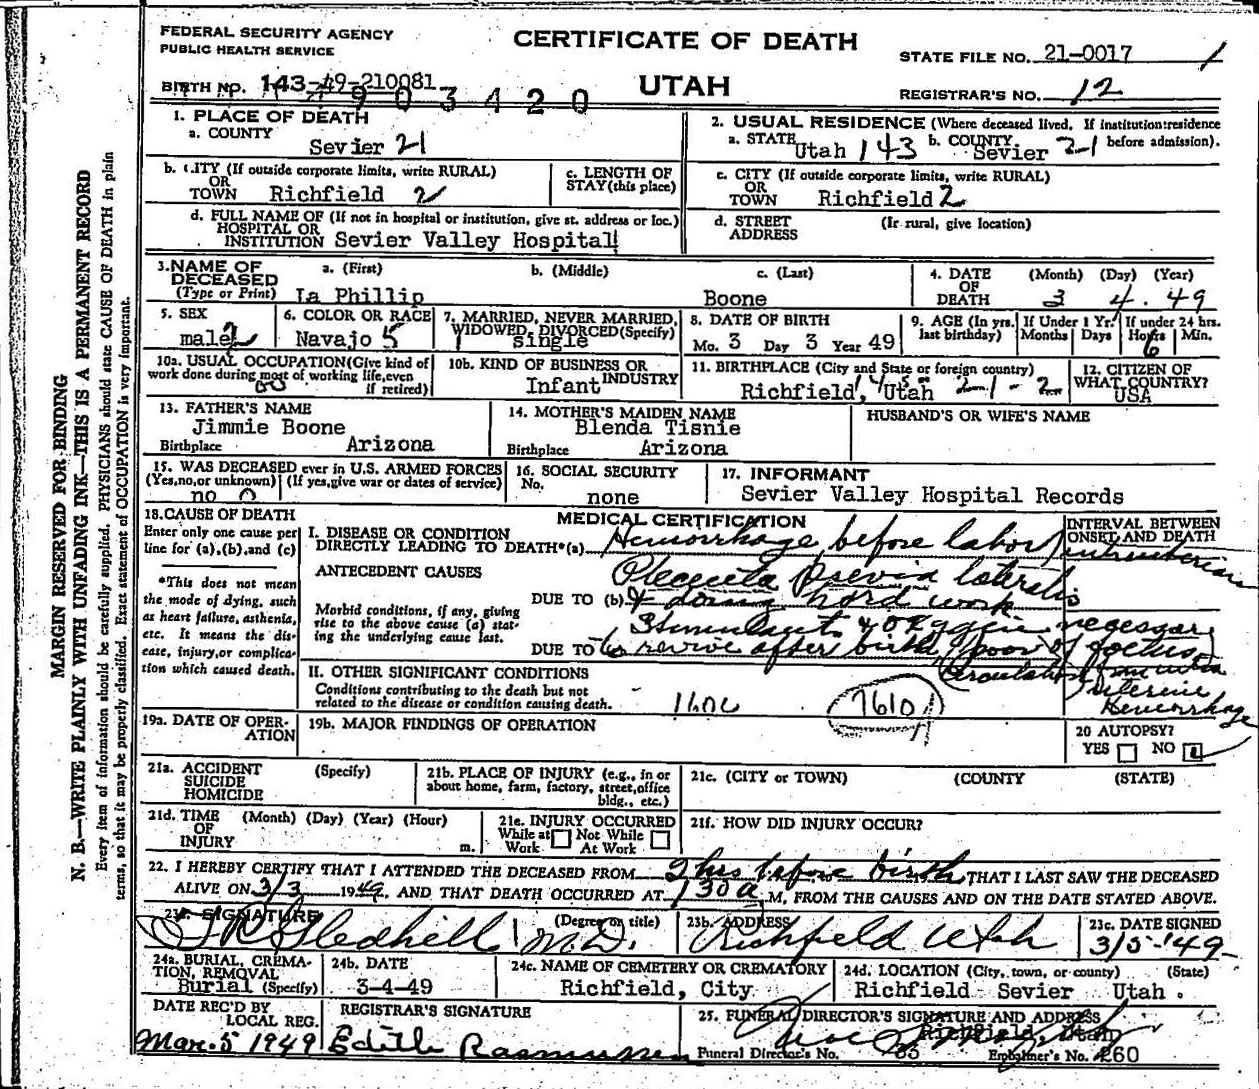 FEDERAL SECURITY AGENCY
PUBLIC HEALTH SERVICE
CERTIFICATE OF DEATH
UTAH
STATE FILE NO. 21-0017 1
BIRTH NO. 143-49-210081
4903420
REGISTRAR'S NO. 12
1. PLACE OF DEATH
a. COUNTY
Sevier 21
2. USUAL RESIDENCE (Where deceased lived. If institution:residence before admission).
a. STATE Utah 143 b. COUNTY Sevier 21
b. CITY (If outside corporate limits, write RURAL)
OR
TOWN Richfield 2
c. LENGTH OF
STAY (this place)
c. CITY (If outside corporate limits, write RURAL)
OR
TOWN Richfield 2
d. FULL NAME OF (If not in hospital or institution, give st. address or loc.)
HOSPITAL OR
INSTITUTION Sevier Valley Hospital
d. STREET (If rural, give location)
ADDRESS
3. NAME OF DECEASED
(Type or Print)
a. (First) b. (Middle) c. (Last)
La Phillip Boone
4. DATE OF DEATH (Month) (Day) (Year)
3 4. 49
5. SEX
male 2
6. COLOR OR RACE
Navajo 5
7. MARRIED, NEVER MARRIED,
WIDOWED, DIVORCED (Specify)
1 single
8. DATE OF BIRTH
Mo. 3 Day 3 Year 49
9. AGE (In yrs. last birthday)
If Under 1 Yr. Months Days
If under 24 hrs. Hours Min.
6
10a. USUAL OCCUPATION (Give kind of
work done during most of working life, even
if retired)
10b. KIND OF BUSINESS OR
INDUSTRY
Infant
11. BIRTHPLACE (City and State or foreign country)
Richfield, Utah 21-2
12. CITIZEN OF
WHAT COUNTRY?
USA
13. FATHER'S NAME
Jimmie Boone
Birthplace Arizona
14. MOTHER'S MAIDEN NAME
Blenda Tisnie
Birthplace Arizona
HUSBAND'S OR WIFE'S NAME
15. WAS DECEASED ever in U.S. ARMED FORCES
(Yes, no, or unknown) (If yes, give war or dates of service)
no 0
16. SOCIAL SECURITY
No. none
17. INFORMANT
Sevier Valley Hospital Records
18. CAUSE OF DEATH
Enter only one cause per
line for (a), (b), and (c)
*This does not mean
the mode of dying, such
as heart failure, asthenia,
etc. It means the dis-
ease, injury, or complica-
tion which caused death.
MEDICAL CERTIFICATION
INTERVAL BETWEEN
ONSET AND DEATH
I. DISEASE OR CONDITION
DIRECTLY LEADING TO DEATH*(a) Hemorrhage before labor
ANTECEDENT CAUSES
Placenta Previa lateralis
DUE TO (b) & doing hard work
Morbid conditions, if any, giving
rise to the above cause (a) stat-
ing the underlying cause last.
necessary
DUE TO to revive after birth poor
Circulation
Hemorrhage
II. OTHER SIGNIFICANT CONDITIONS
Conditions contributing to the death but not
related to the disease or condition causing death.
7610
19a. DATE OF OPER-
ATION
19b. MAJOR FINDINGS OF OPERATION
20 AUTOPSY?
YES NO
21a. ACCIDENT (Specify)
SUICIDE
HOMICIDE
21b. PLACE OF INJURY (e.g., in or
about home, farm, factory, street, office
bldg., etc.)
21c. (CITY or TOWN) (COUNTY (STATE)
21d. TIME (Month) (Day) (Year) (Hour)
OF
INJURY m.
21e. INJURY OCCURRED
While at Work Not While At Work
21f. HOW DID INJURY OCCUR?
22. I HEREBY CERTIFY THAT I ATTENDED THE DECEASED FROM 2 hrs before birth THAT I LAST SAW THE DECEASED
ALIVE ON 3/3 1949. AND THAT DEATH OCCURRED AT 130 a M, FROM THE CAUSES AND ON THE DATE STATED ABOVE.
SIGNATURE (Degree or title)
Gledhill M.D.
23b. ADDRESS
Richfield Utah
23c. DATE SIGNED
3/5-'49
24a. BURIAL, CREMA-
TION, REMOVAL
Burial (Specify)
24b. DATE
3-4-49
24c. NAME OF CEMETERY OR CREMATORY
Richfield, City
24d. LOCATION (City, town, or county) (State)
Richfield Sevier Utah.
DATE REC'D BY
LOCAL REG.
Mar. 5 1949
REGISTRAR'S SIGNATURE
Edith Rasmussen
25. FUNERAL DIRECTOR'S SIGNATURE AND ADDRESS
Richfield, Utah
Funeral Director's No. Embalmer's No. 260
MARGIN RESERVED FOR BINDING
N. B.—WRITE PLAINLY WITH UNFADING INK—THIS IS A PERMANENT RECORD
Every item of information should be carefully supplied. PHYSICIANS should state CAUSE OF DEATH in plain
terms, so that it may be properly classified. Exact statement of OCCUPATION is very important.